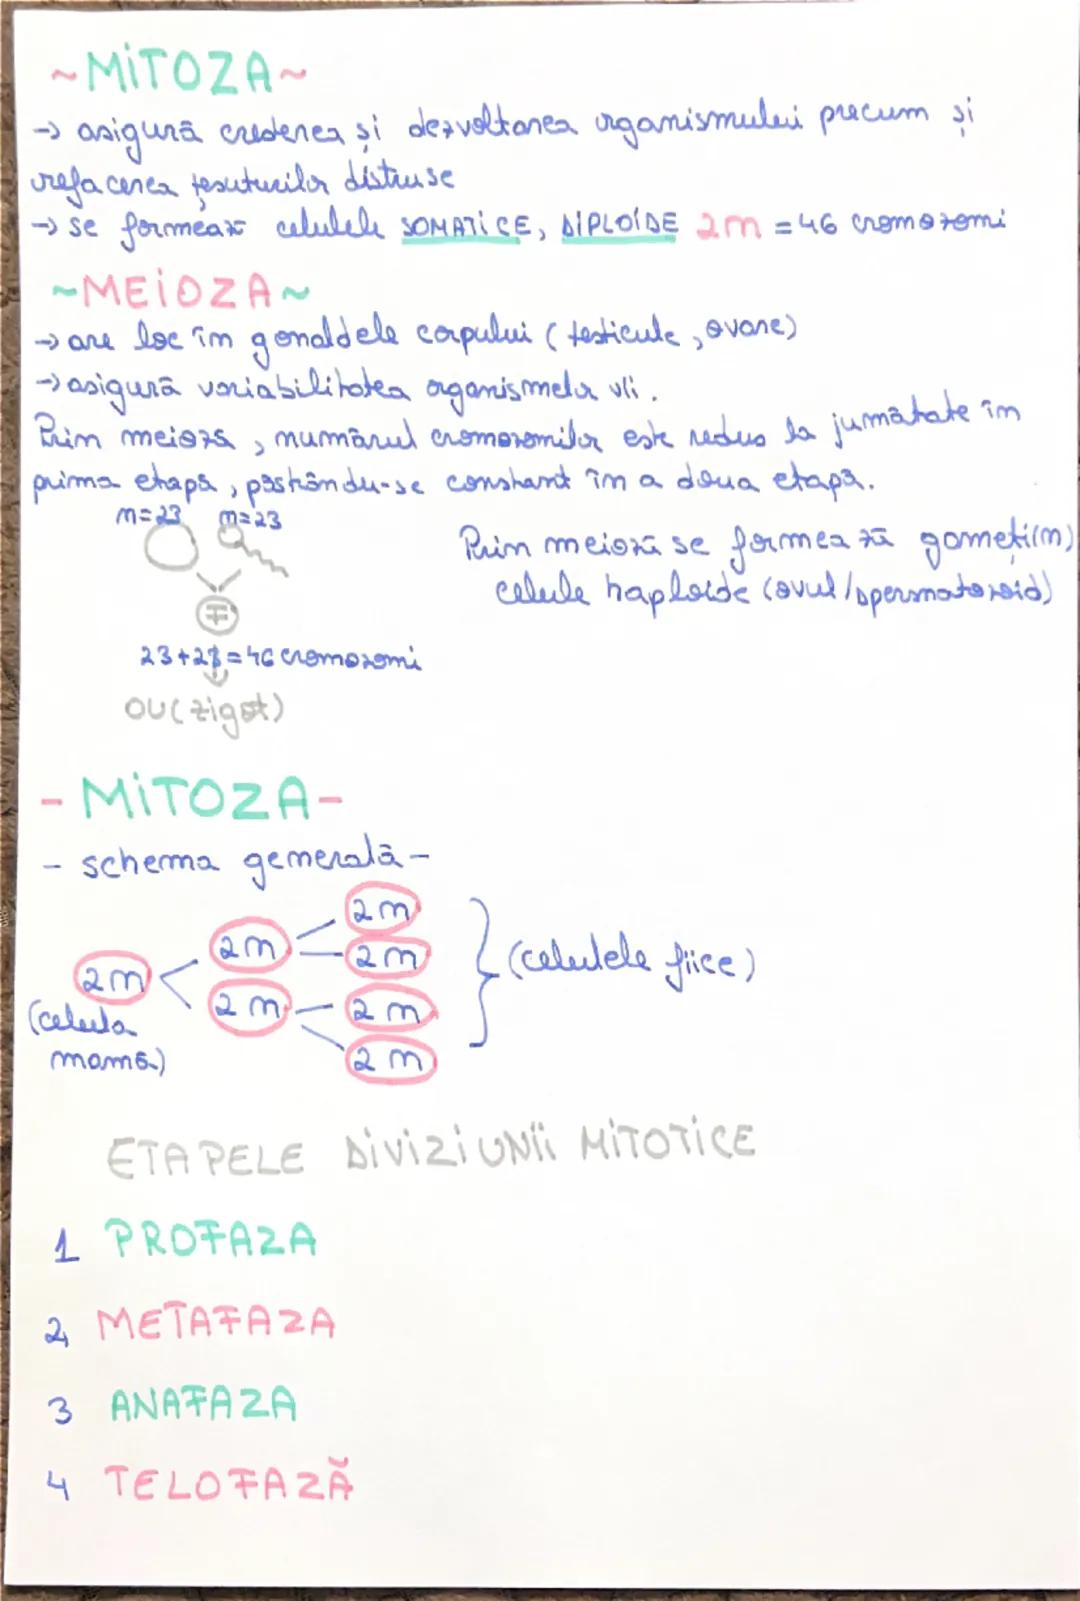 ~MITOZA~
→ asigură creșterea și dezvoltarea organismului precum și
refacerea țesuturilor distruse
→ se formează celulele SOMATICE, DIPLOIDE 2n = 46 cromozomi
~MEIOZA~
→ are loc în gonaldele corpului (testicule, ovare)
→ asigură variabilitatea organismelor vii.
Prin meioză, numărul cromozomilor este redus la jumătate în
prima etapă, păstrându-se constant în a doua etapă.
n=23 n=23
Prin meioză se formează gameți(n)
celule haploide (ovul/spermatozoid)
F
23+23=46 cromozomi
OU(zigot)
- MITOZA-
- schema generală-
2n
2n 2n
2n (celulele fiice)
2n 2n 2n
(celula
mamă) 2n
ETAPELE DIVIZIUNII MITOTICE
1 PROFAZA
2 METAFAZA
3 ANAFAZA
4 TELOFAZĂ